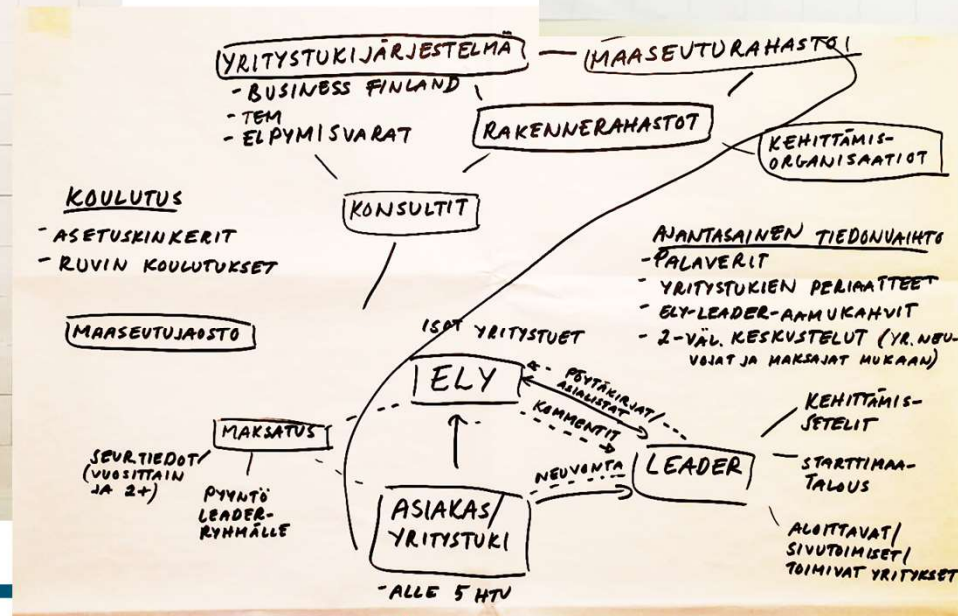 YRITYSTUKIJÄRJESTELMÄ
- BUSINESS FINLAND
- TEM
- ELPYMISVARAT
MAASEUTURAHASTO
RAKENNERAHASTOT
KEHITTÄMIS-
ORGANISAATIOT
KONSULTIT
KOULUTUS
- ASETUSKINKERIT
- RUVIN KOULUTUKSET
MAASEUTUJAOSTO
AJANTASAINEN TIEDONVAIHTO
- PALAVERIT
- YRITYSTUKIEN PERIAATTEET
- ELY-LEADER-AAMUKAHVIT
- 2-VÄL. KESKUSTELUT (YR. NEU-
VOJAT JA MAKSAJAT MUKAAN)
ISOT YRITYSTUET
ELY
PÖYTÄKIRJAT/
ASIALISTAT
KOMMENTIT
NEUVONTA
LEADER
KEHITTÄMIS-
SETELIT
STARTTIMAA-
TALOUS
ALOITTAVAT/
SIVUTOIMISET/
TOIMIVAT YRITYKSET
MAKSATUS
SEUR.TIEDOT/
(VUOSITTAIN
JA 2+)
PYYNTÖ
LEADER-
RYHMÄLLE
ASIAKAS/
YRITYSTUKI
- ALLE 5 HTV